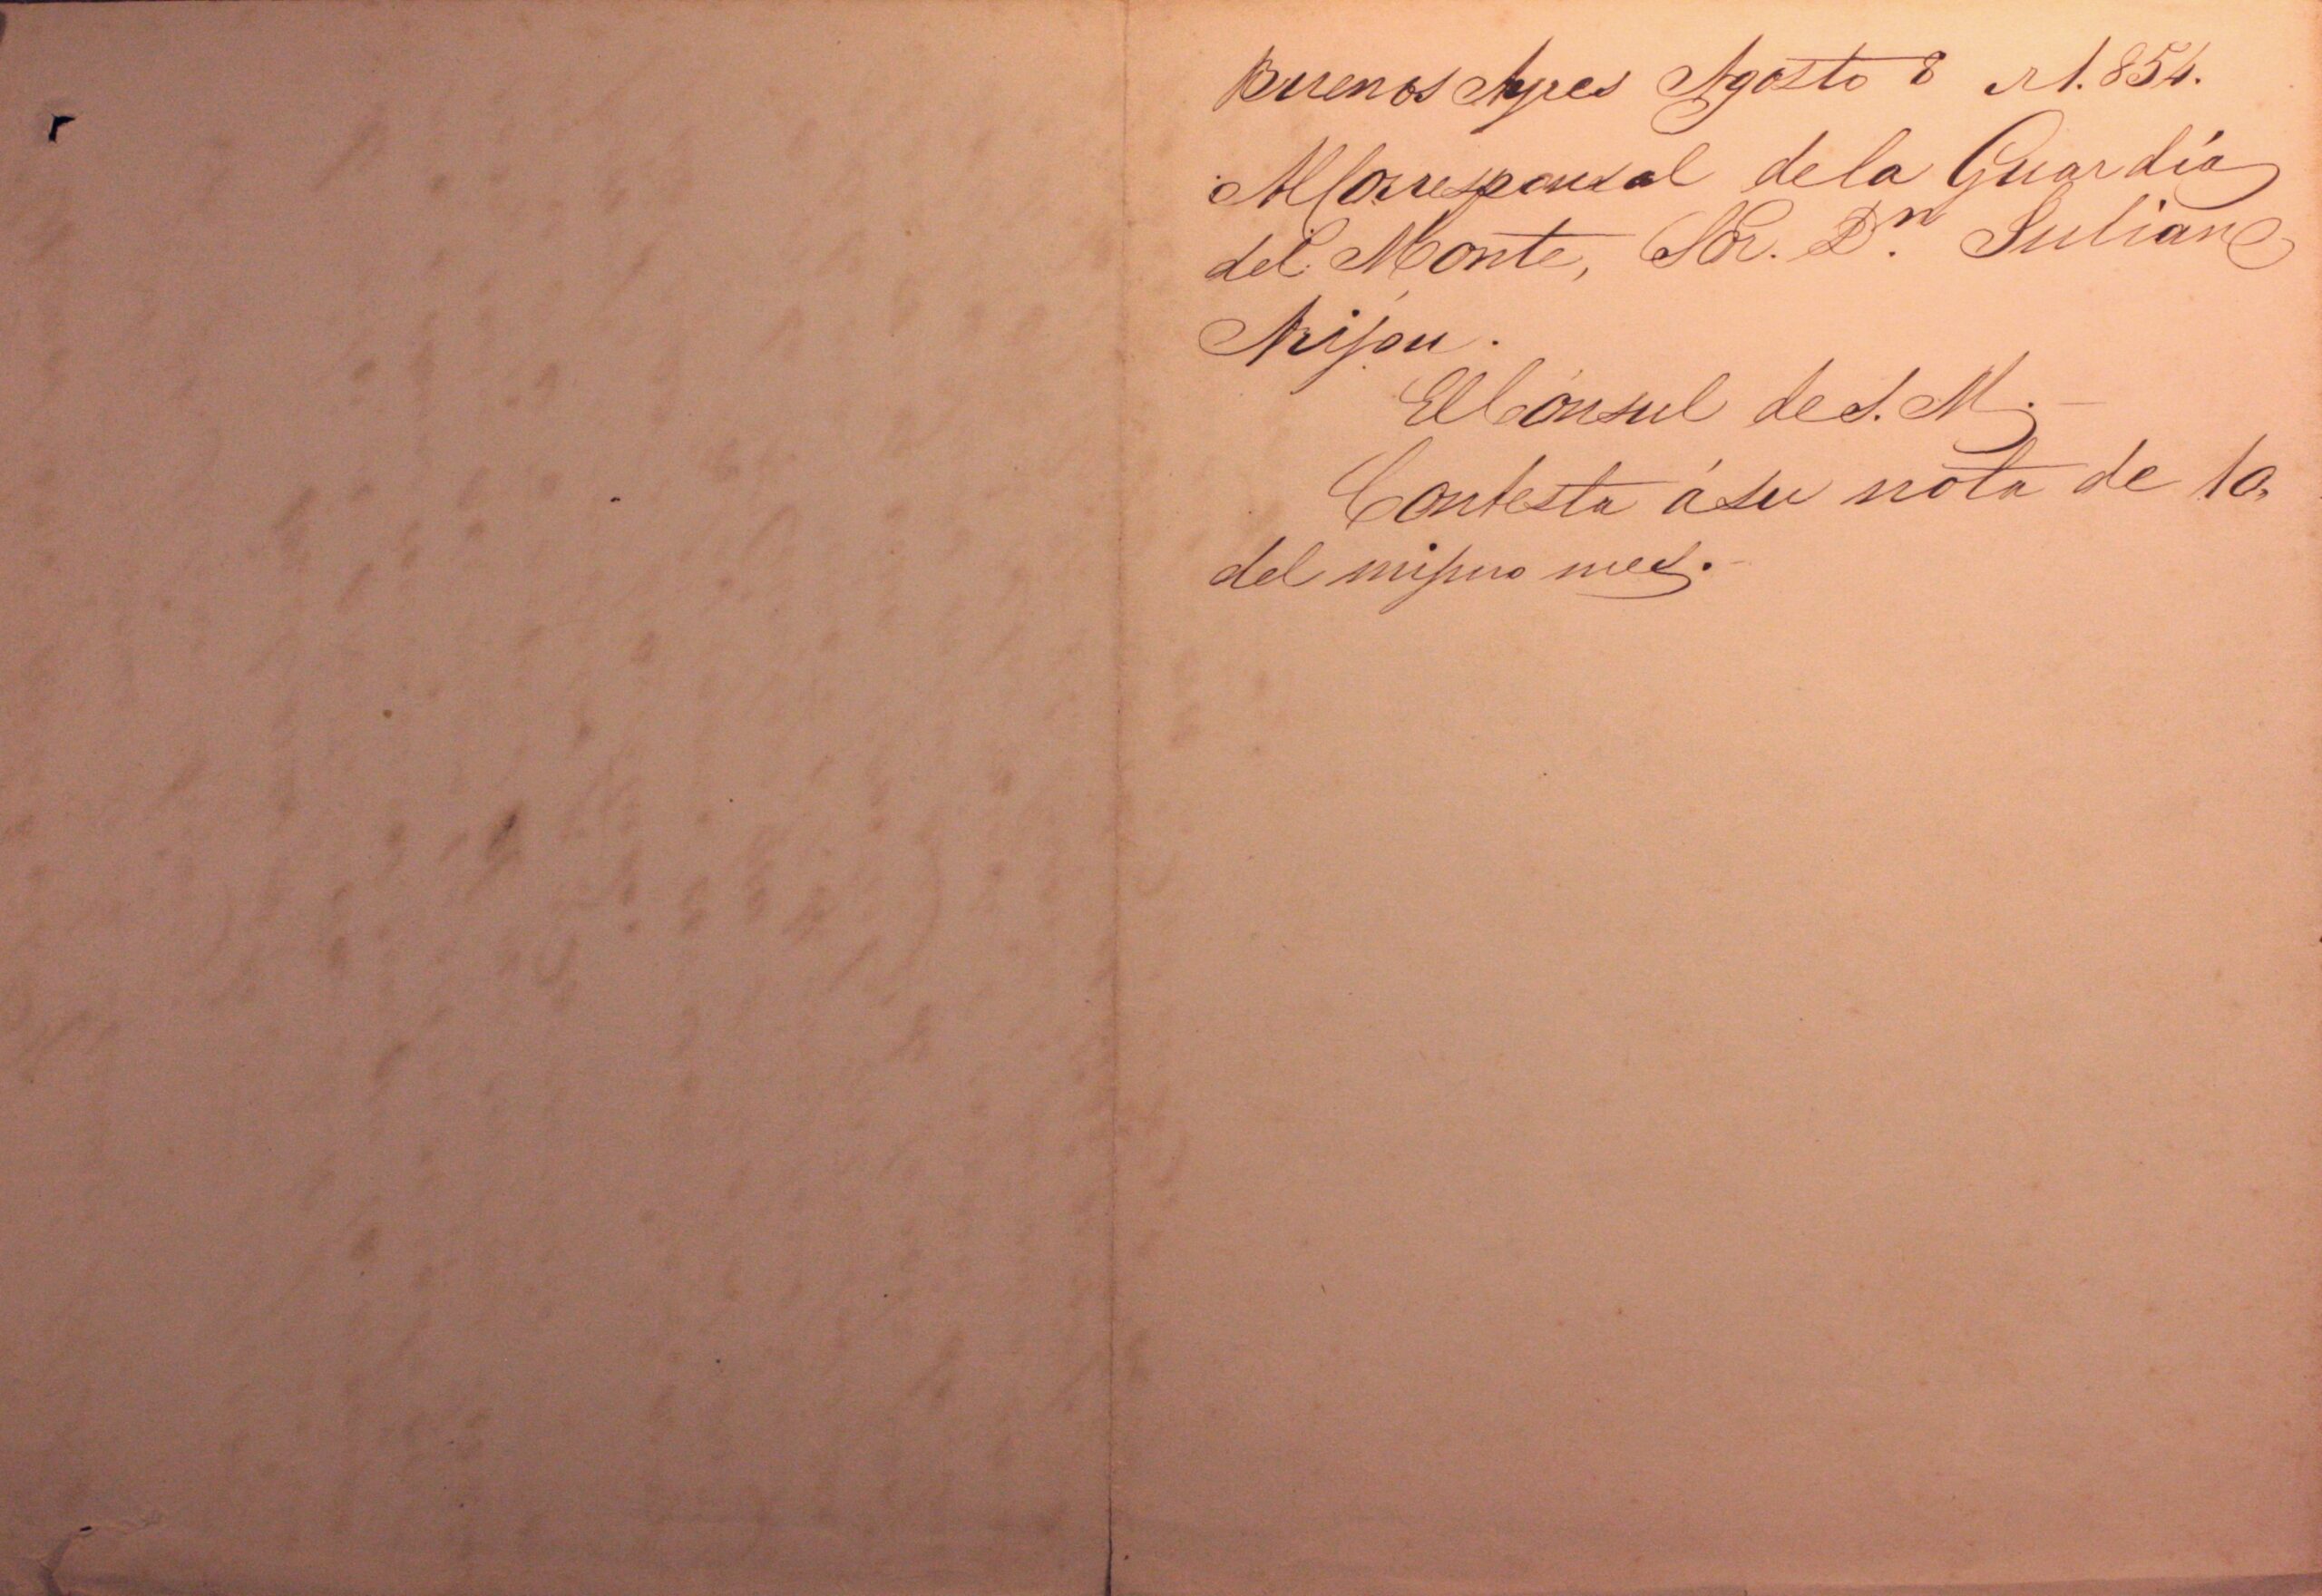 Buenos Ayres Agosto 8 1.854.
Al Corresponsal de la Guardia
del Monte, Sor. Dn. Julian

El Cónsul de S. M.
Contesta á su nota de 1o,
del mismo mes.